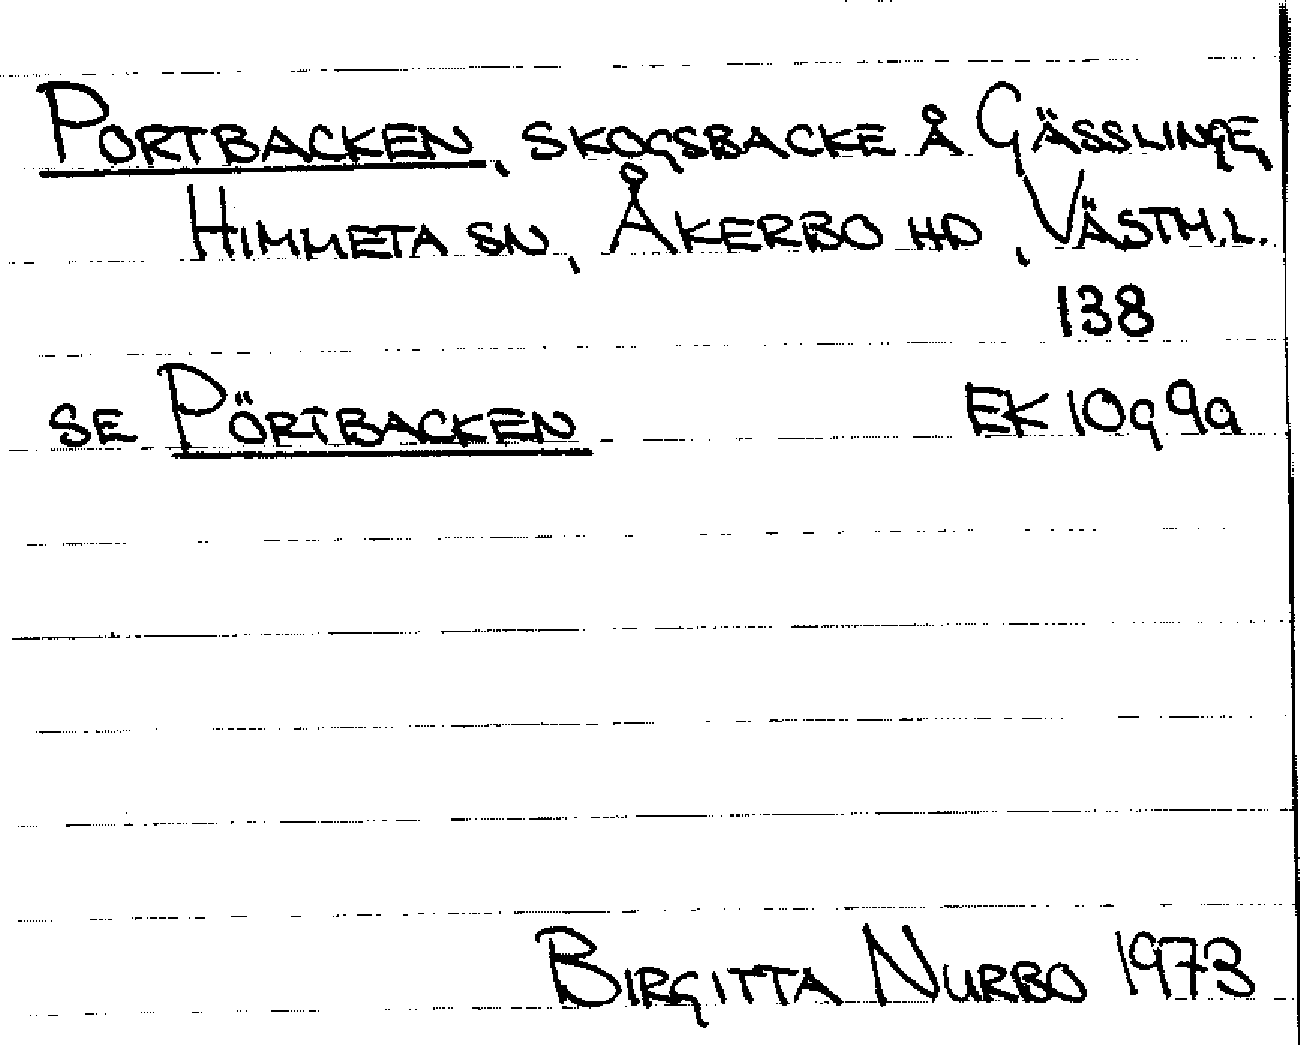 PORTBACKEN, SKOGSBACKE Å GÄSSLINGE,
HIMMETA SN, ÅKERBO HD, VÄSTM.L.
138
SE PÖRTBACKEN EK 10g 9a
BIRGITTA NURBO 1973